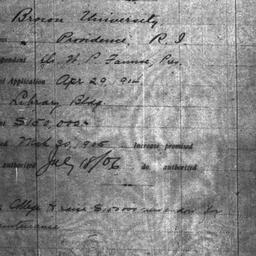 Brown University
Providence, R. I.
W. P. Faunce, Pres.
Application Apr 29, 914
Library Bldg.
$150,000
Mch 30, 905 Increase promised
authorized July 18/06 do authorized
College to raise $150000 new endow for
maintenance